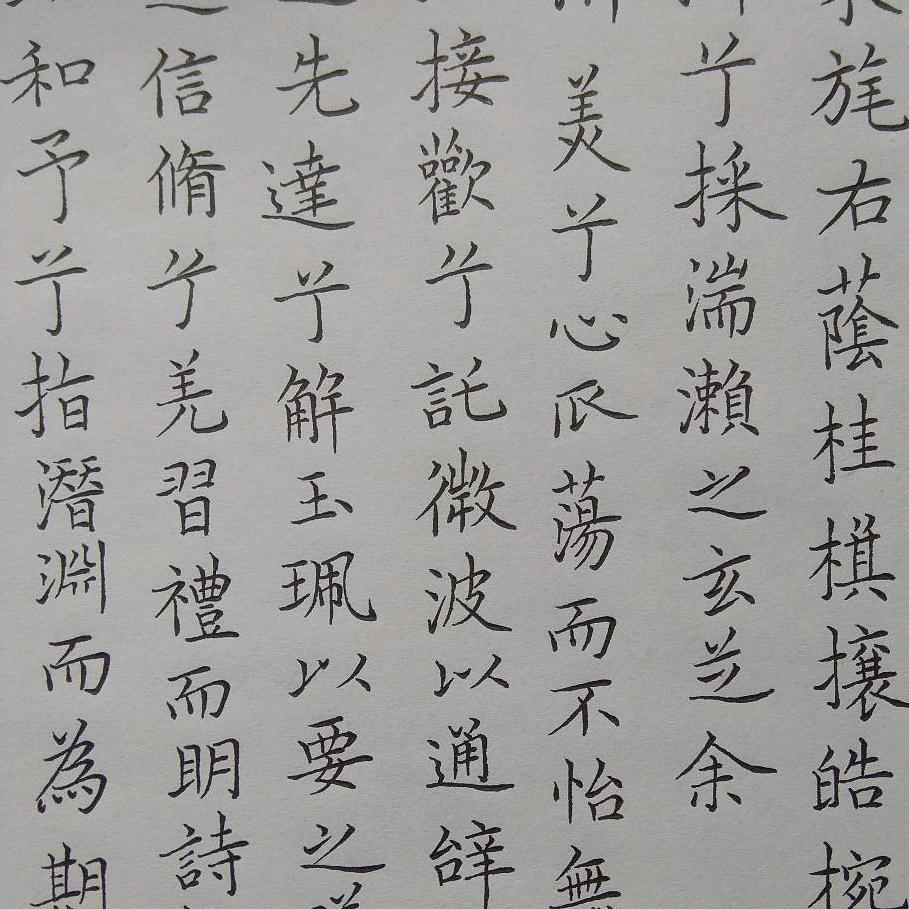 旄右蔭桂棋攘皓椀
兮採湍瀨之玄芝余
美兮心瓜蕩而不怡無
接歡兮託微波以通辝
先達兮解玉珮以要之
信脩兮羌習禮而明詩
和予兮指潛淵而為期